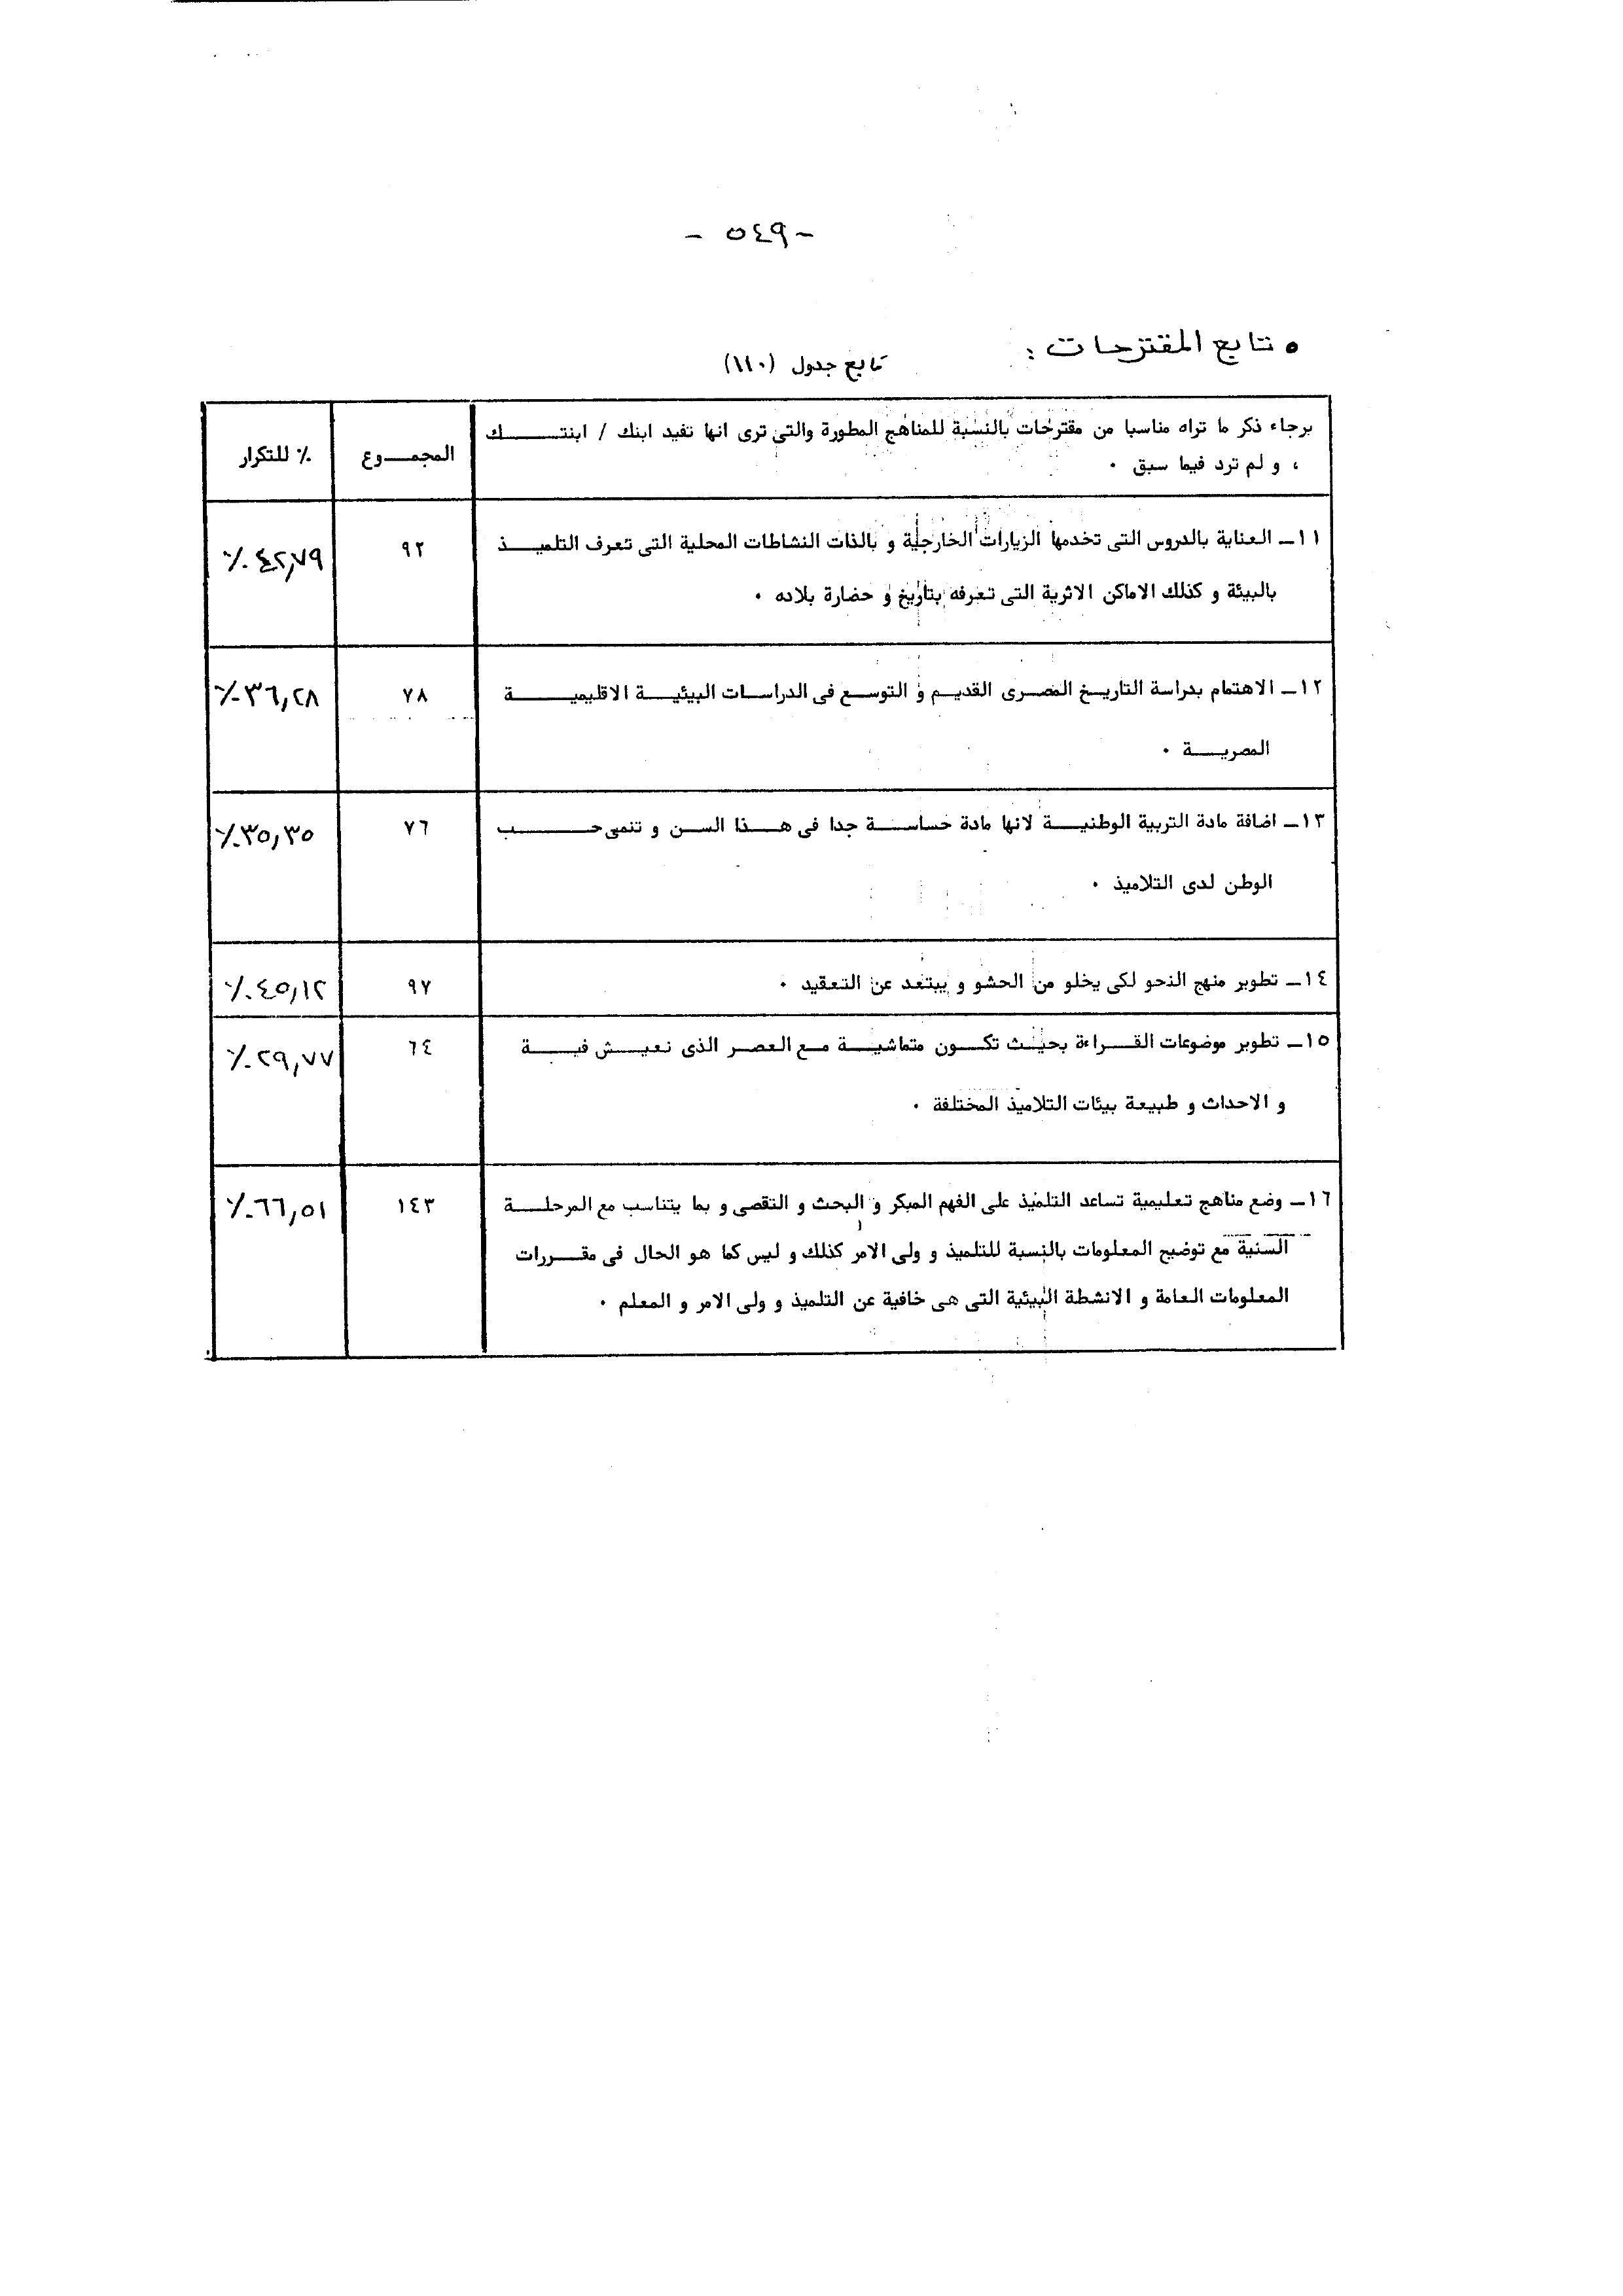 - ٥٤٩ -
• تابع المقترحات :
تابع جدول (١١٠)
برجاء ذكر ما تراه مناسبا من مقترحات بالنسبة للمناهج المطورة والتى ترى انها تفيد ابنك / ابنتك
، و لم ترد فيما سبق .
المجموع
٪ للتكرار
١١ـ العناية بالدروس التى تخدمها الزيارات الخارجية و بالذات النشاطات المحلية التى تعرف التلميذ
بالبيئة و كذلك الاماكن الاثرية التى تعرفه بتاريخ و حضارة بلاده .
٩٢
٤٢,٧٩٪
١٢ـ الاهتمام بدراسة التاريخ المصرى القديم و التوسع فى الدراسات البيئية الاقليمية
المصرية .
٧٨
٣٦,٢٨٪
١٣ـ اضافة مادة التربية الوطنية لانها مادة حساسة جدا فى هذا السن و تنمى حب
الوطن لدى التلاميذ .
٧٦
٣٥,٣٥٪
١٤ـ تطوير منهج النحو لكى يخلو من الحشو و يبتعد عن التعقيد .
٩٧
٤٥,١٢٪
١٥ـ تطوير موضوعات القراءة بحيث تكون متماشية مع العصر الذى نعيش فية
و الاحداث و طبيعة بيئات التلاميذ المختلفة .
٦٤
٢٩,٧٧٪
١٦ـ وضع مناهج تعليمية تساعد التلميذ على الفهم المبكر و البحث و التقصى و بما يتناسب مع المرحلة
السنية مع توضيح المعلومات بالنسبة للتلميذ و ولى الامر كذلك و ليس كما هو الحال فى مقررات
المعلومات العامة و الانشطة البيئية التى هى خافية عن التلميذ و ولى الامر و المعلم .
١٤٣
٦٦,٥١٪